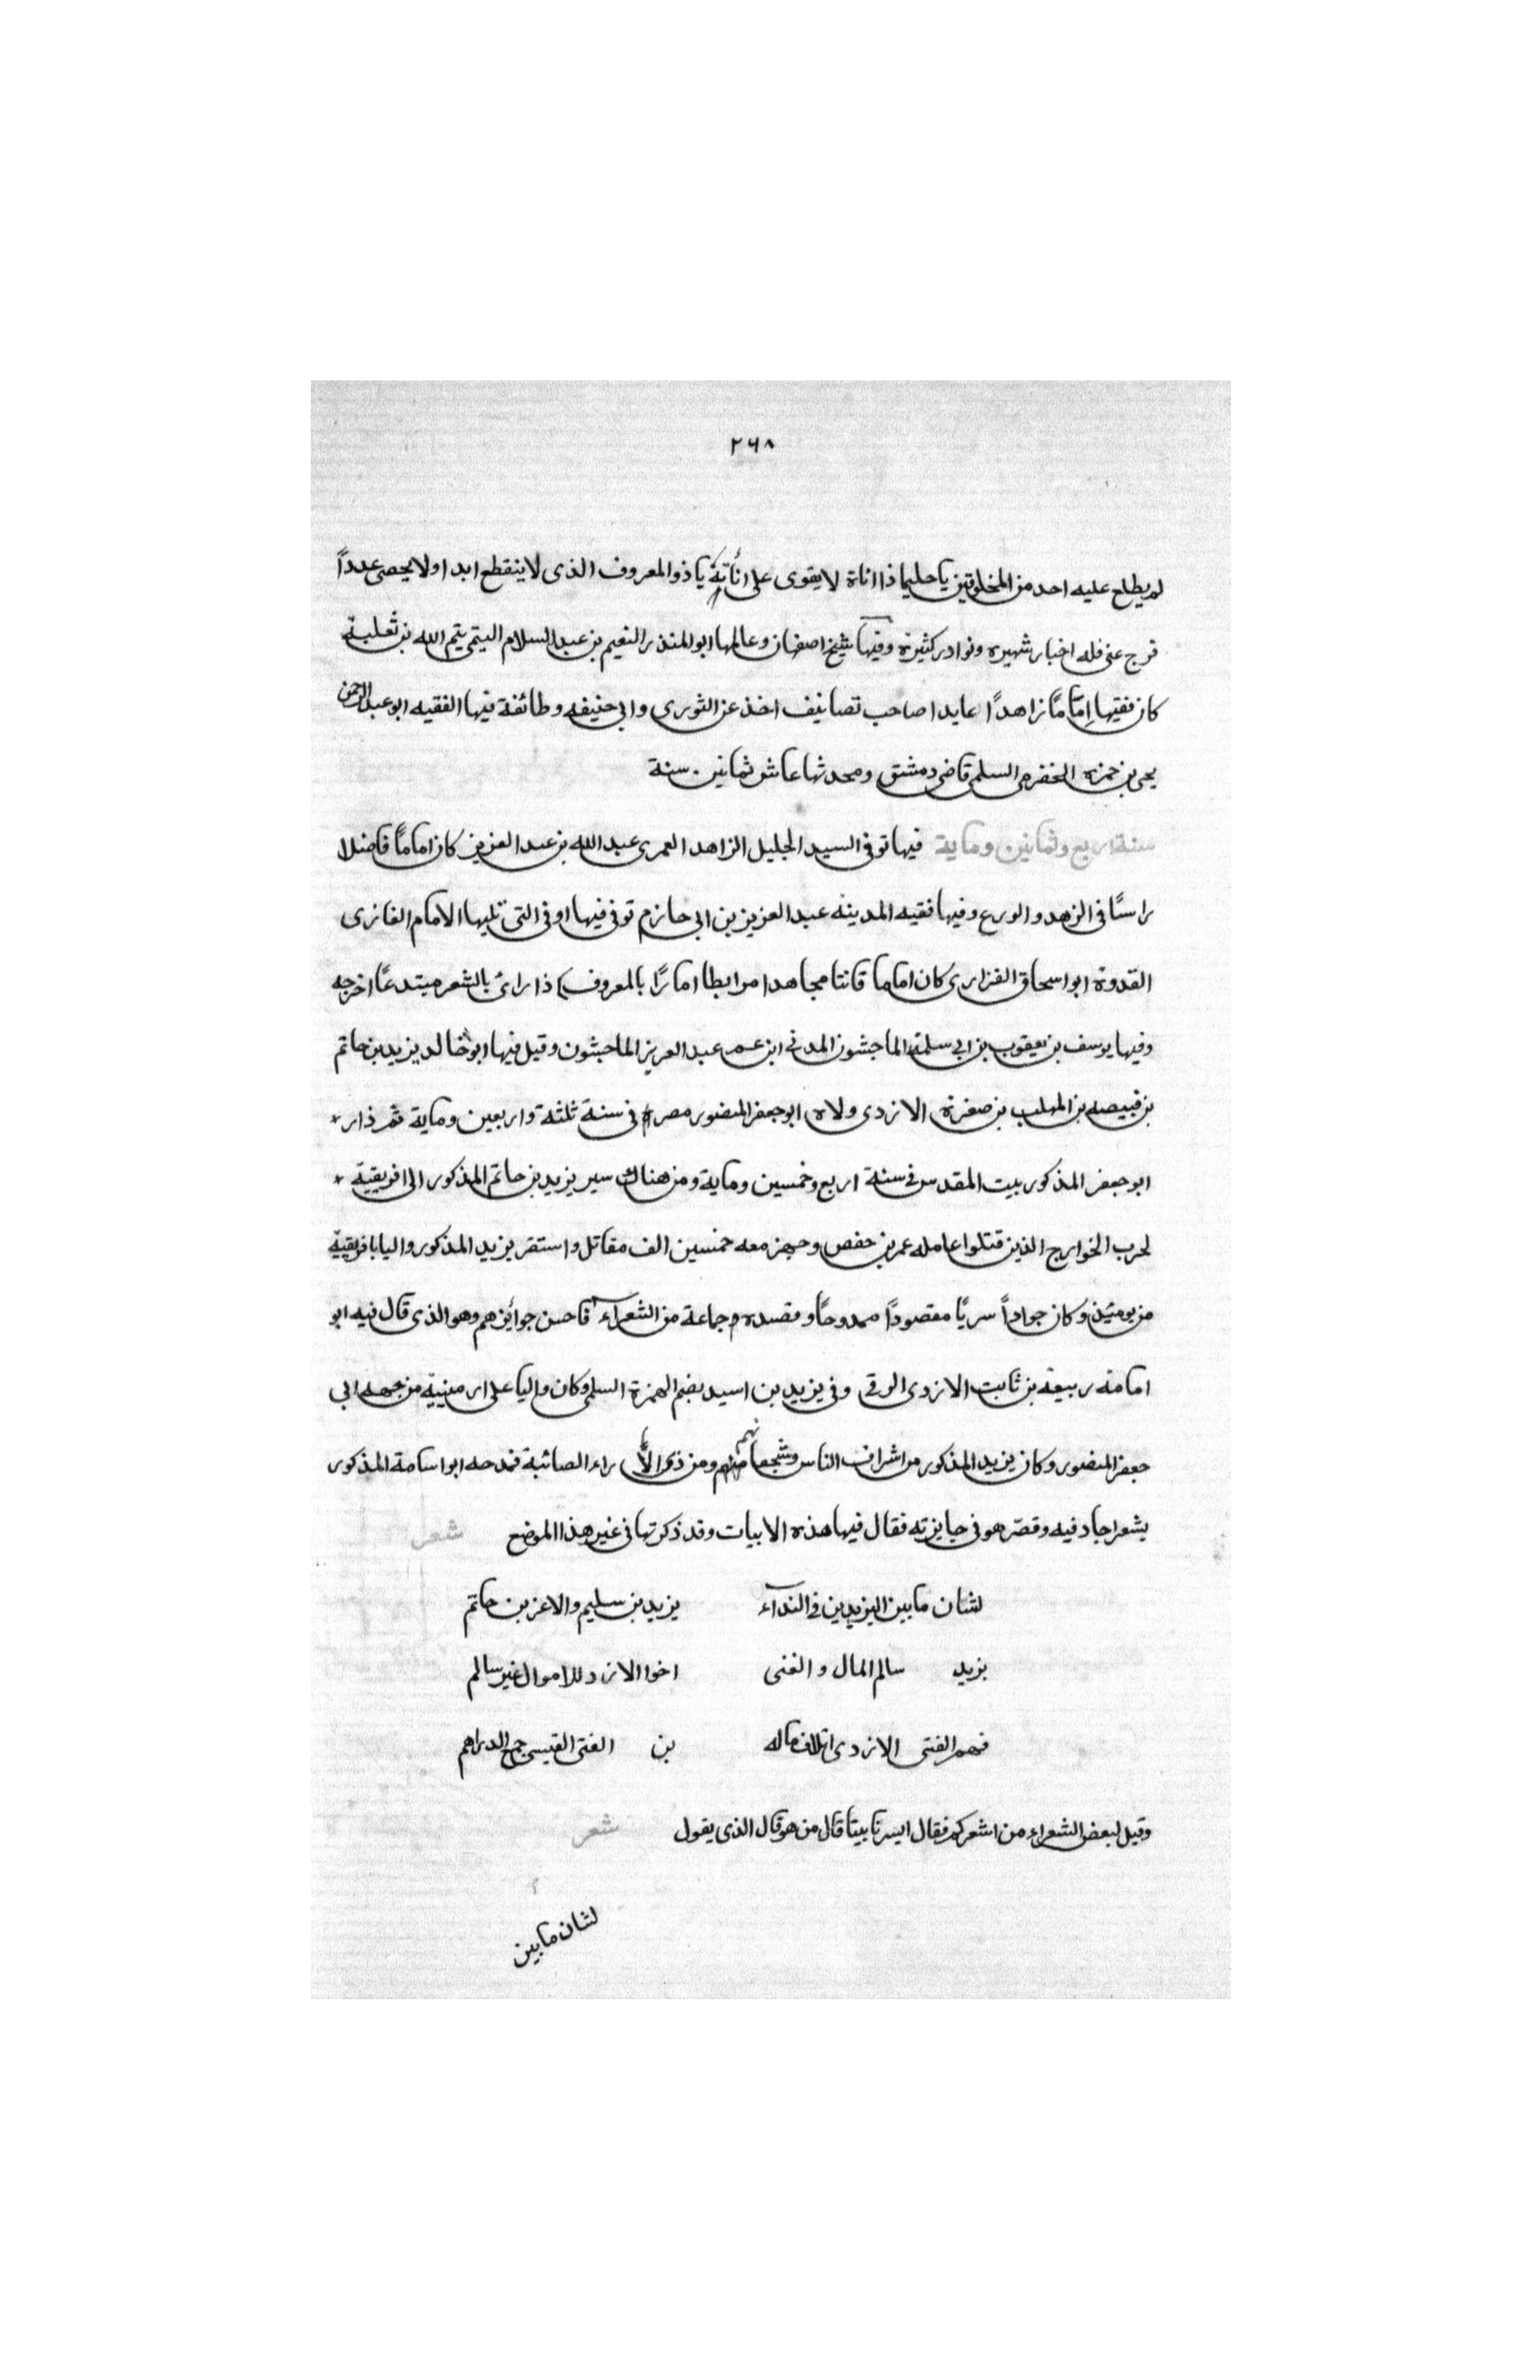 ٢٦٨
لم يطلع عليه احد من المخلوقين يا حليما ذا اناة لا يقوى على أناته يا ذو المعروف الذى لا ينقطع ابدا ولا يحصى عدداً
فرج عنى فله اخبار شهيره ونوادر كثيرة وفيها شيخ اصفهان وعالمها ابو المنذر النعيم بن عبد السلام التيمى يتم الله بن ثعلبة
كان فقيها اِمَامًا زاهدًا عابدا صاحب تصانيف اخذ عن الثورى وابى حنيفه وطائفة فيها الفقيه ابو عبد الرحمن
يحيى بن حمزه الحضرمى السلمى قاضى دمشق ومحدثها عاش ثمانين سنة
سنة اربع وثمانين وماية فيها توفى السيد الجليل الزاهد العمرى عبد الله بن عبد العزيز كان امامًا فاضلا
راسًا فى الزهد والورع وفيها فقيه المدينه عبد العزيز بن ابى حازم توفى فيها او فى التى تليها الامام الغازى
القدوة ابو اسحاق الفزارى كان اماما قانتا مجاهدا مرابطا امارًا بالمعروف اذا راى بالشعر مبتدعًا اخرجه
وفيها يوسف بن يعقوب بن ابى سلمة الماجشون المدنى ابن عم عبد العزيز الماجشون وقيل فيها ابو خالد يزيد بن حاتم
بن قبيصه بن المهلب بن صفرة الازدى ولاه ابو جعفر المنصور مصر فى سنة ثلثة واربعين وماية ثم ذار
ابو جعفر المذكور بيت المقدس فى سنة اربع وخمسين وماية ومن هناك سير يزيد بن حاتم المذكور الى افريقية
لحرب الخوارج الذين قتلوا عامله عمر بن حفص وجهز معه خمسين الف مقاتل واستقر يزيد المذكور واليا بافريقية
من يومئذ وكان جواداً سريًا مقصودًا ممدوحًا وقصده جماعة من الشعراء فاحسن جوائزهم وهو الذى قال فيه ابو
امامة ربيعة بن ثابت الازدى الرقى وفى يزيد بن اسيد بضم الهمزة السلمى وكان واليا على ارمينية من جهة ابى
جعفر المنصور وكان يزيد المذكور من اشراف الناس وشجعانهم ومن ذى الآراء الصائبة فمدحه ابو اسامة المذكور
بشعر اجاد فيه وقصّر هو فى جايزته فقال فيها هذه الابيات وقد ذكرتها فى غير هذا الموضع شعر
لشتان ما بين اليزيدين فى النداء يزيد بن سليم والاعز بن حاتم
يزيد سالم المال والغنى اخوا الازد للاموال غير سالم
فهم الفتى الازدى اتلاف ماله بن الفتى القيسى جمع الدراهم
وقيل لبعض الشعراء من اشعركم فقال ايسرنا بيتا قال من هو قال الذى يقول شعر
لشتان ما بين